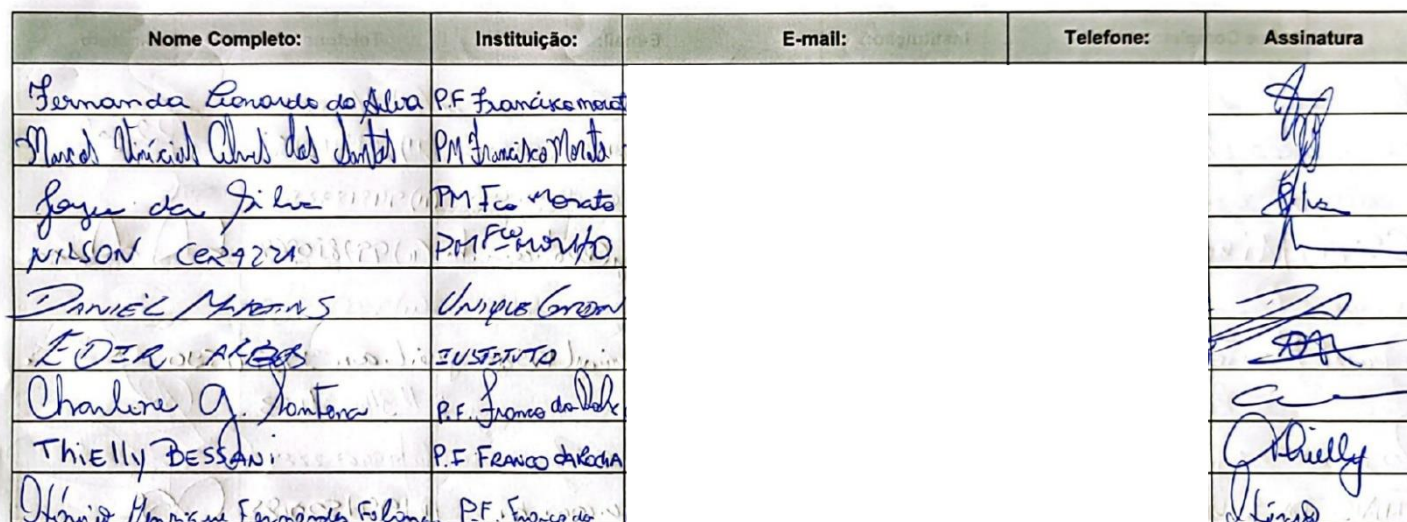 Nome Completo: Instituição: E-mail: Telefone: Assinatura
Fernanda Leonardo da Silva P.F Francisco morat
Vinícius Alves dos Santos PM Francisco Morato
da Silva PM Fco Morato Silva
NILSON PM Fco MORATO
DANIEL MARTINS UNIQUE
EDER INSTITUTO
Charlene G. Santana P.F. Franco da
ThiElly BESSANi P.F FRANCO dA ROCHA Thielly
Henrique Fernandes P.F. Franco da